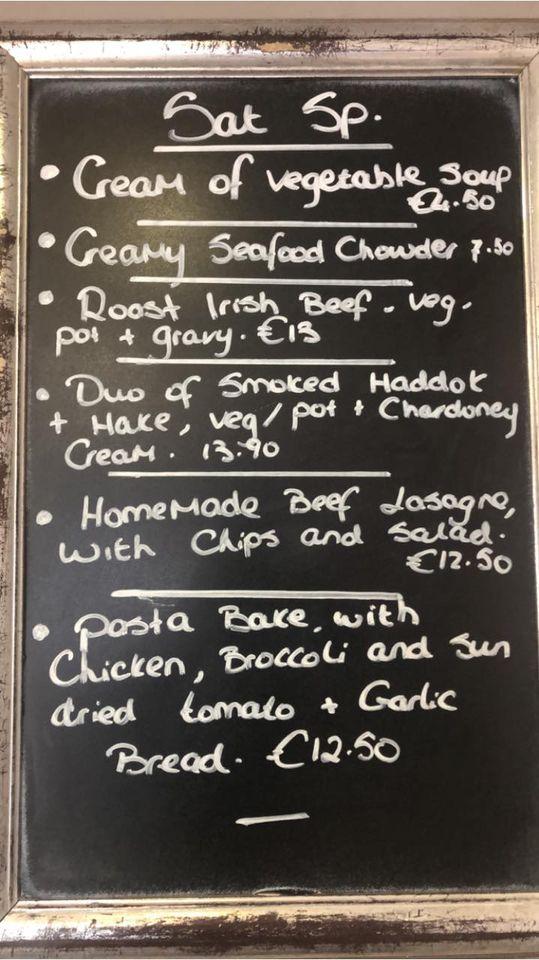 Sat Sp.
• Cream of vegetable Soup
€4.50
• Creamy Seafood Chowder 7.50
• Roast Irish Beef. veg.
pot + gravy. €13
• Duo of Smoked Haddok
+ Hake, veg/pot + Chardoney
Cream. 13.90
• Homemade Beef Lasagne,
with Chips and salad.
€12.50
• Pasta Bake, with
Chicken, Broccoli and Sun
dried tomato + Garlic
Bread. €12.50